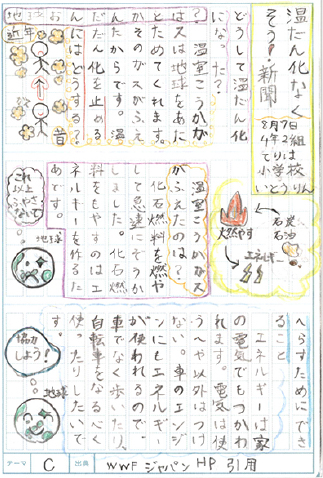 温だん化なく
そう！新聞
8月7日
4年2組
てりは
小学校
いとうりん
どうして温だん化
になった？
温室こうかガ
スは地球をあた
ためてくれます。
そのガスがふえ
たからです。温
だん化を止める
にはどうする？
近年
昔
石炭
石油
燃やす
エネルギー
温室こうかガス
がふえたのは？
化石燃料を燃や
して急速にぞうか
しました。化石燃
料をもやすのはエ
ネルギーを作るた
めです。
これ
以上
ふやさ
ないで
地球
へらすためにでき
ること
エネルギーは家
の電気でもつかわ
れます。電気は使
うへや以外はつけ
ない。車のエンジ
ンにもエネルギー
が使われるので
車でなく歩いたり、
自転車をなるべく
使ったりしたいで
す。
協力
しよう！
地球
テーマ C 出典 WWFジャパンHP引用